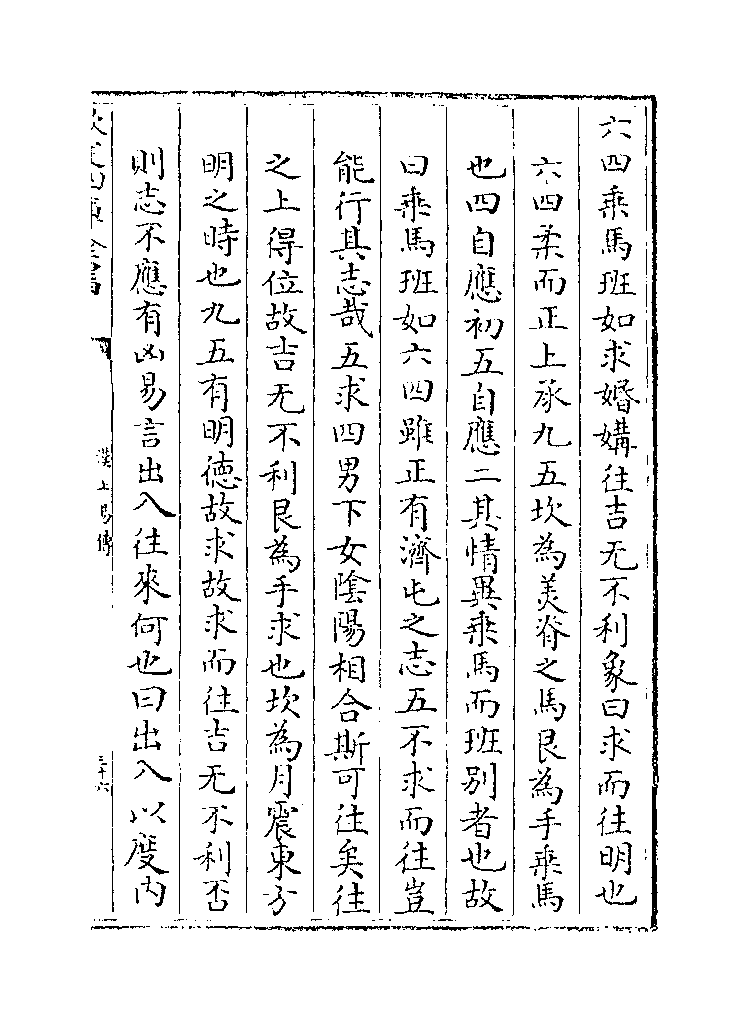 六四乗馬班如求婚媾往吉无不利象曰求而往明也
六四柔而正上承九五坎為美脊之馬艮為手乗馬
也四自應初五自應二其情異乗馬而班别者也故
曰乗馬班如六四雖正有濟屯之志五不求而往豈
能行其志哉五求四男下女陰陽相合斯可往矣往
之上得位故吉无不利艮為手求也坎為月震東方
明之時也九五有明德故求故求而往吉无不利否
則志不應有凶易言出入往來何也曰出入以度内
欽定四庫全書
漢上易傳
三十六